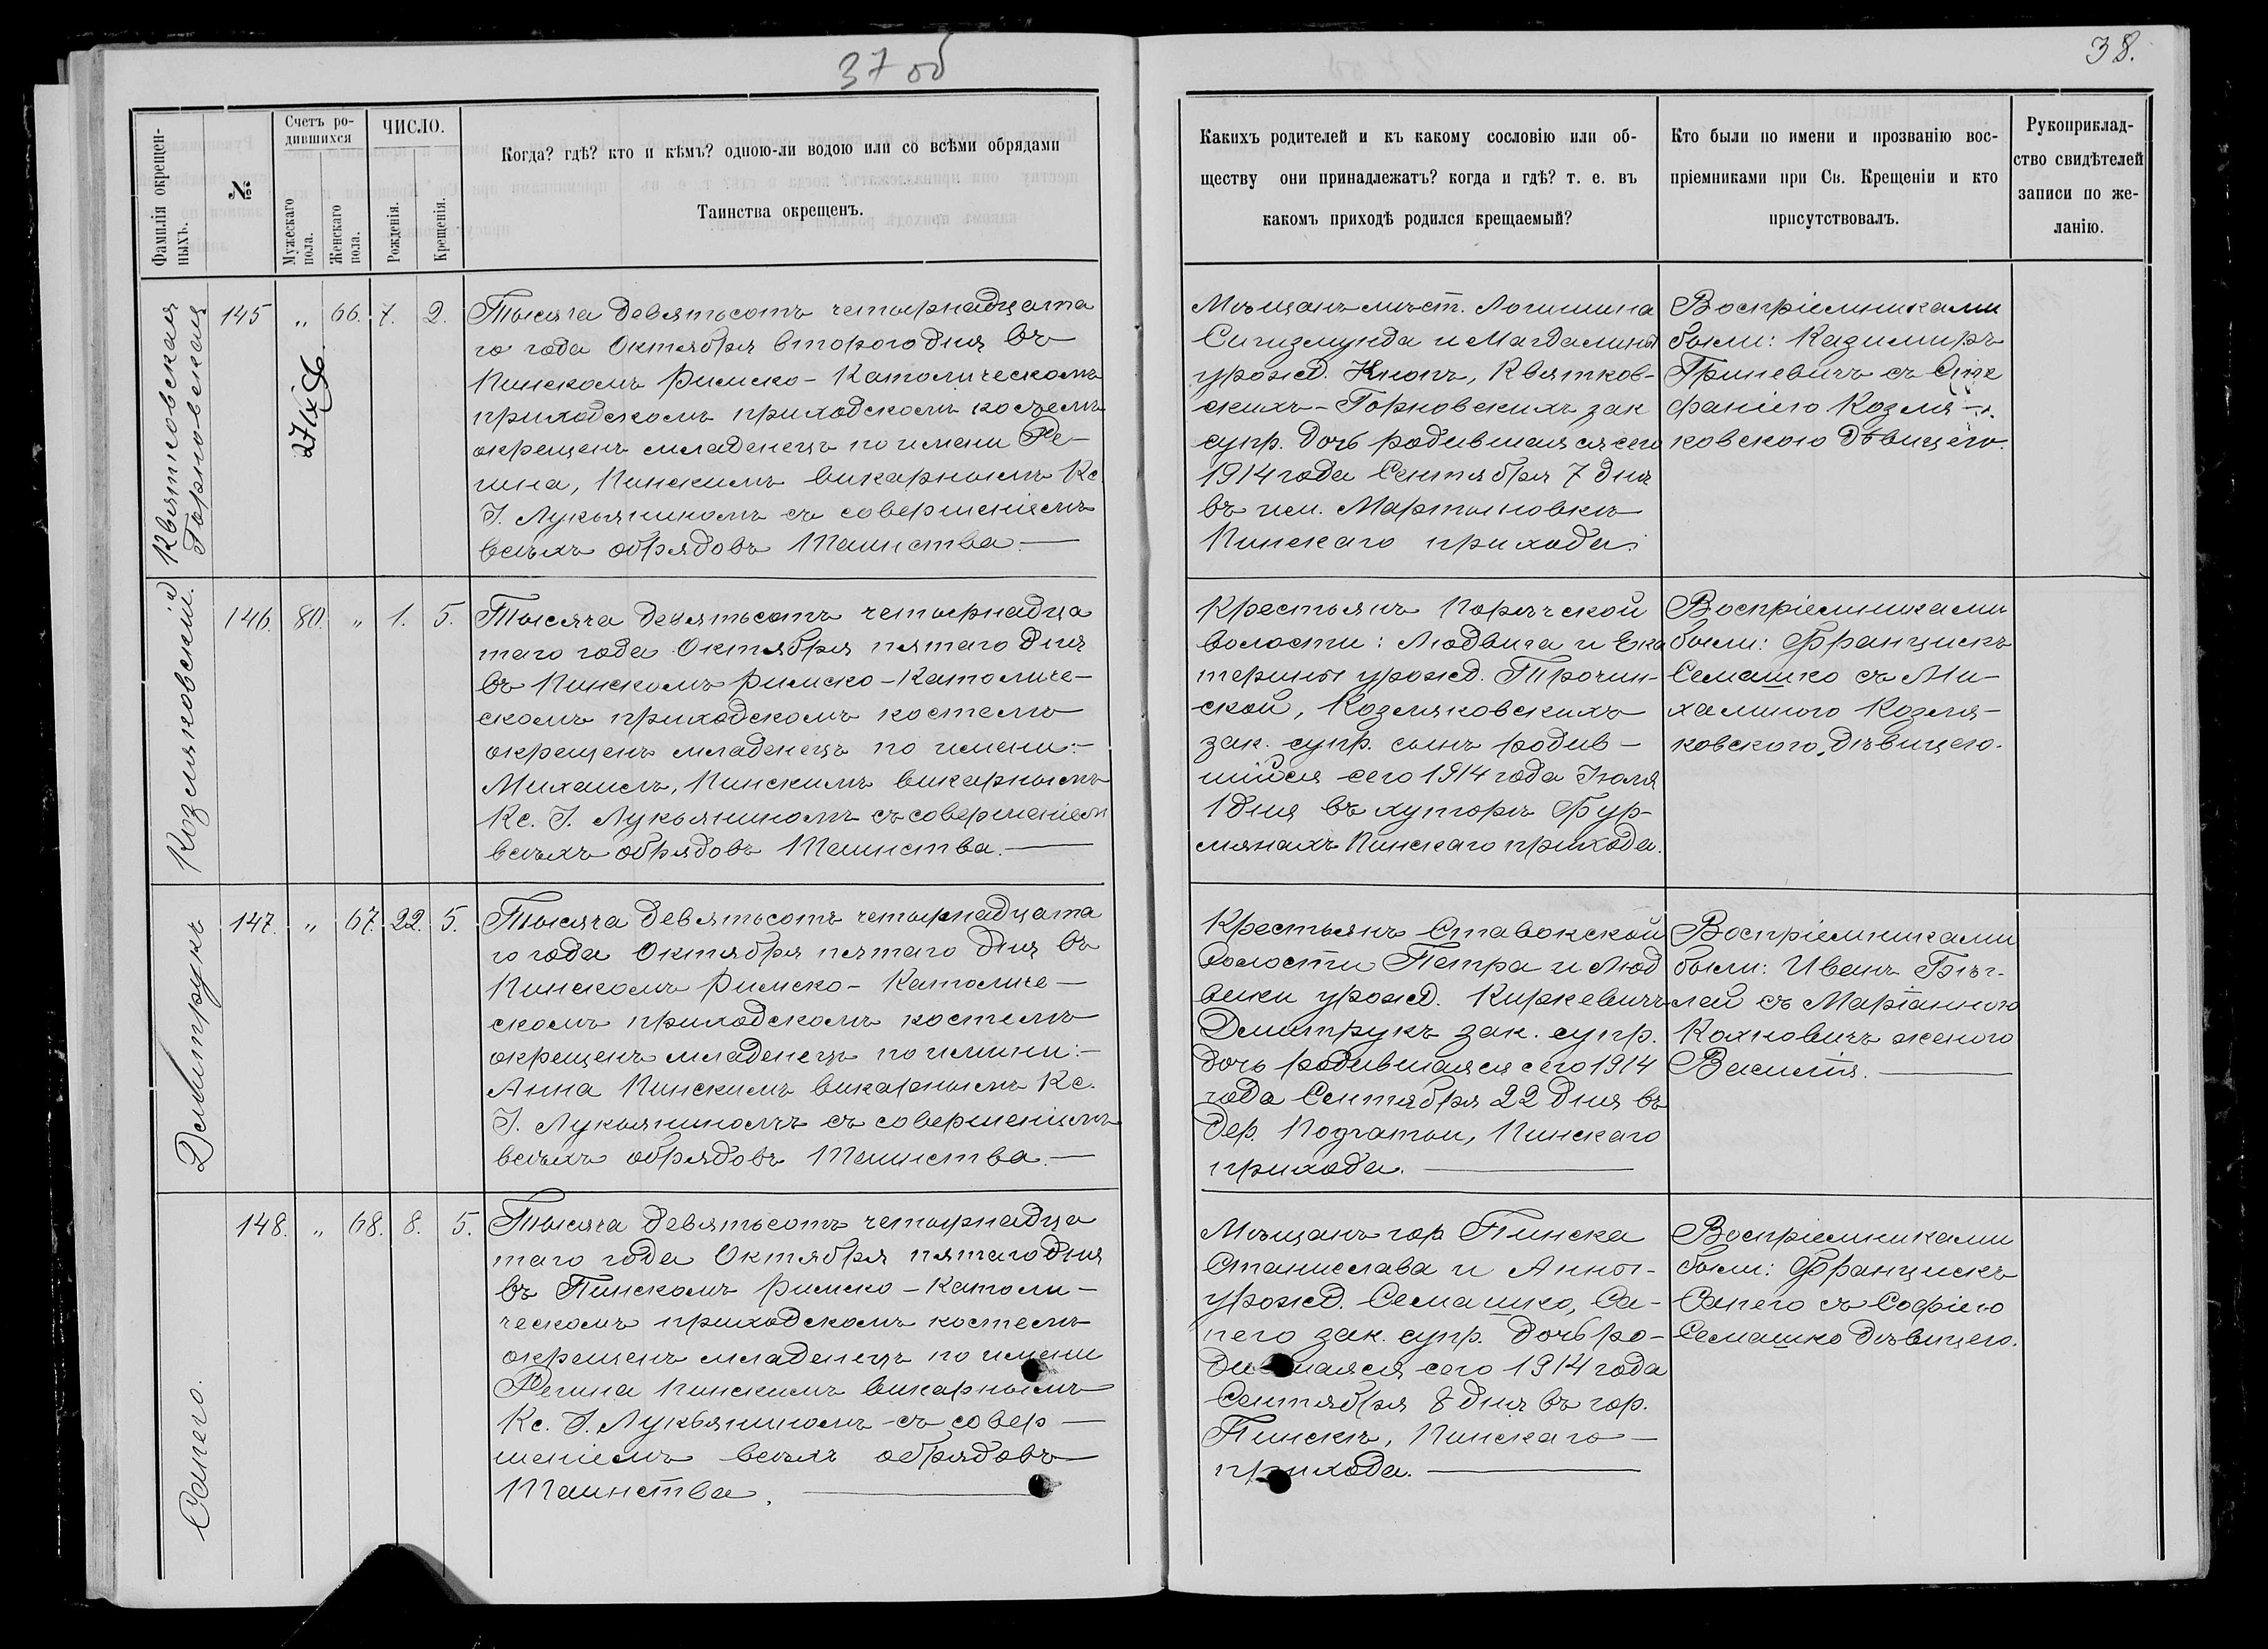 37 об
38.
Фамилія окрещен-
ныхъ.
№
Счетъ ро-
дившихся
Мужескаго
пола.
Женскаго
пола.
ЧИСЛО.
Рожденія.
Крещенія.
Когда? гдѣ? кто и кѣмъ? одною-ли водою или со всѣми обрядами
Таинства окрещенъ.
Какихъ родителей и къ какому сословію или об-
ществу они принадлежатъ? когда и гдѣ? т. е. въ
какомъ приходѣ родился крещаемый?
Кто были по имени и прозванію вос-
пріемниками при Св. Крещеніи и кто
присутствовалъ.
Рукоприклад-
ство свидѣтелей
записи по же-
ланію.
Квятковская
Горновская
145 „ 66. 7. 2.
Тысяча девятьсотъ четырнадцата
го года Октября второго дня въ
Пинскомъ Римско-Католическомъ
приходскомъ приходскомъ костелѣ
окрещенъ младенецъ по имени Ре-
гина, Пинскимъ викарнымъ Кс.
І. Лукьяниномъ съ совершеніемъ
всѣхъ обрядовъ Таинства.
Мѣщанъ мѣст. Логишина
Сигизмунда и Магдалины
урожд. Кнопъ, Квятков-
скихъ-Горновскихъ зак
супр. дочь родившаяся сего
1914 года Сентября 7 дня
въ им. Мартыновкѣ
Пинскаго прихода.
Воспріемниками
были: Казимиръ
Гриневичъ съ Сте
фаніею Козля-
ковскою дѣвицею.
Козляковскій.
146. 80. „ 1. 5.
Тысяча девятьсотъ четырнадца
таго года Октября пятаго дня
въ Пинскомъ Римско-Католиче-
скомъ приходскомъ костелѣ
окрещенъ младенецъ по имени:-
Михаилъ, Пинскимъ викарнымъ
Кс. І. Лукьяниномъ съ совершеніем
всѣхъ обрядовъ Таинства.
Крестьянъ Порѣчской
волости: Людвига и Ека
терины урожд. Трочин-
ской, Козляковскихъ
зак. супр. сынъ родив-
шійся сего 1914 года Іюля
1 дня въ хуторѣ Бур-
мянахъ Пинскаго прихода.
Воспріемниками
были: Францискъ
Семашко съ Ми-
халиною Козля-
ковского, дѣвицею.
Дмитрукъ
147. „ 67. 22. 5.
Тысяча девятьсотъ четырнадцата
го года Октября пятаго дня въ
Пинскомъ Римско-Католиче-
скомъ приходскомъ костелѣ
окрещенъ младенецъ по имини:-
Анна Пинскимъ викарнымъ Кс.
І. Лукьяниномъ съ совершеніемъ
всѣхъ обрядовъ Таинства.
Крестьянъ Ставокской
волости Петра и Люд
вики урожд. Киркевичъ
Дмитрукъ зак. супр.
дочь родившаяся сего 1914
года Сентября 22 дня въ
дер. Почапы, Пинскаго
прихода.
Воспріемниками
были: Иванъ Бѣг-
лей съ Маріанною
Кохновичъ женою
Василія.
Сапего.
148. „ 68. 8. 5.
Тысяча девятьсотъ четырнадца
таго года Октября пятаго дня
въ Пинскомъ Римско-Католи-
ческомъ приходскомъ костелѣ
окрещенъ младенецъ по имени
Регина Пинскимъ викарнымъ
Кс. І. Лукьяниномъ съ совер-
шеніемъ всѣхъ обрядовъ
Таинства.
Мѣщанъ гор Пинска
Станислава и Анны-
урожд. Семашко, Са-
пего зак. супр. дочь ро-
дившаяся сего 1914 года
Сентября 8 дня въ гор.
Пинскѣ, Пинскаго
прихода.
Воспріемниками
были: Францискъ
Сапего съ Софіею
Семашко дѣвицею.